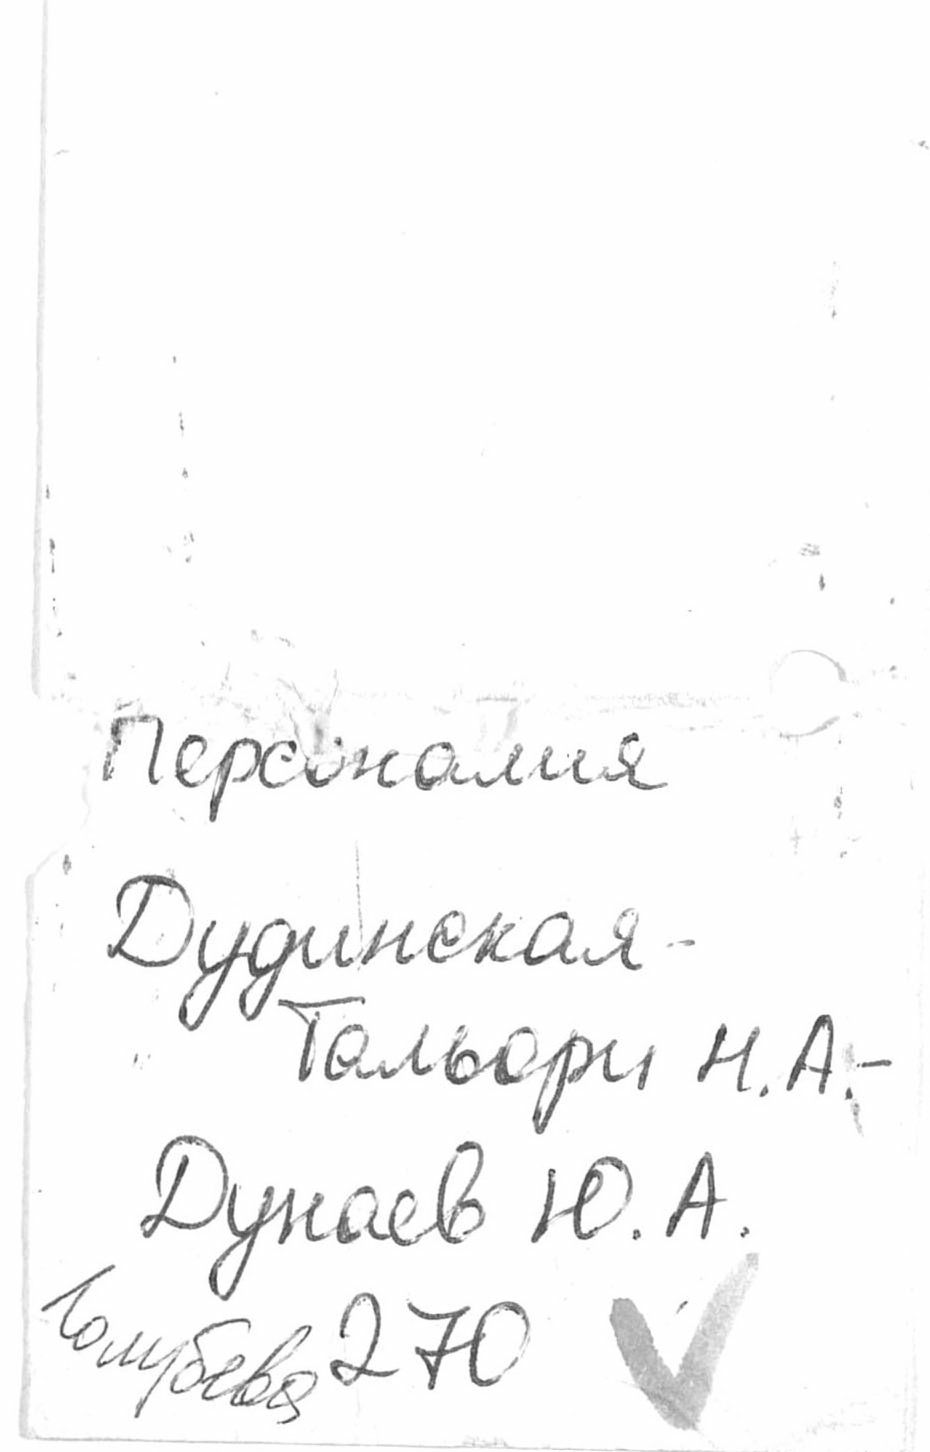 Персоналия
Дудинская-
Тальори Н.А.-
Дунаев Ю.А.
Голубева 270